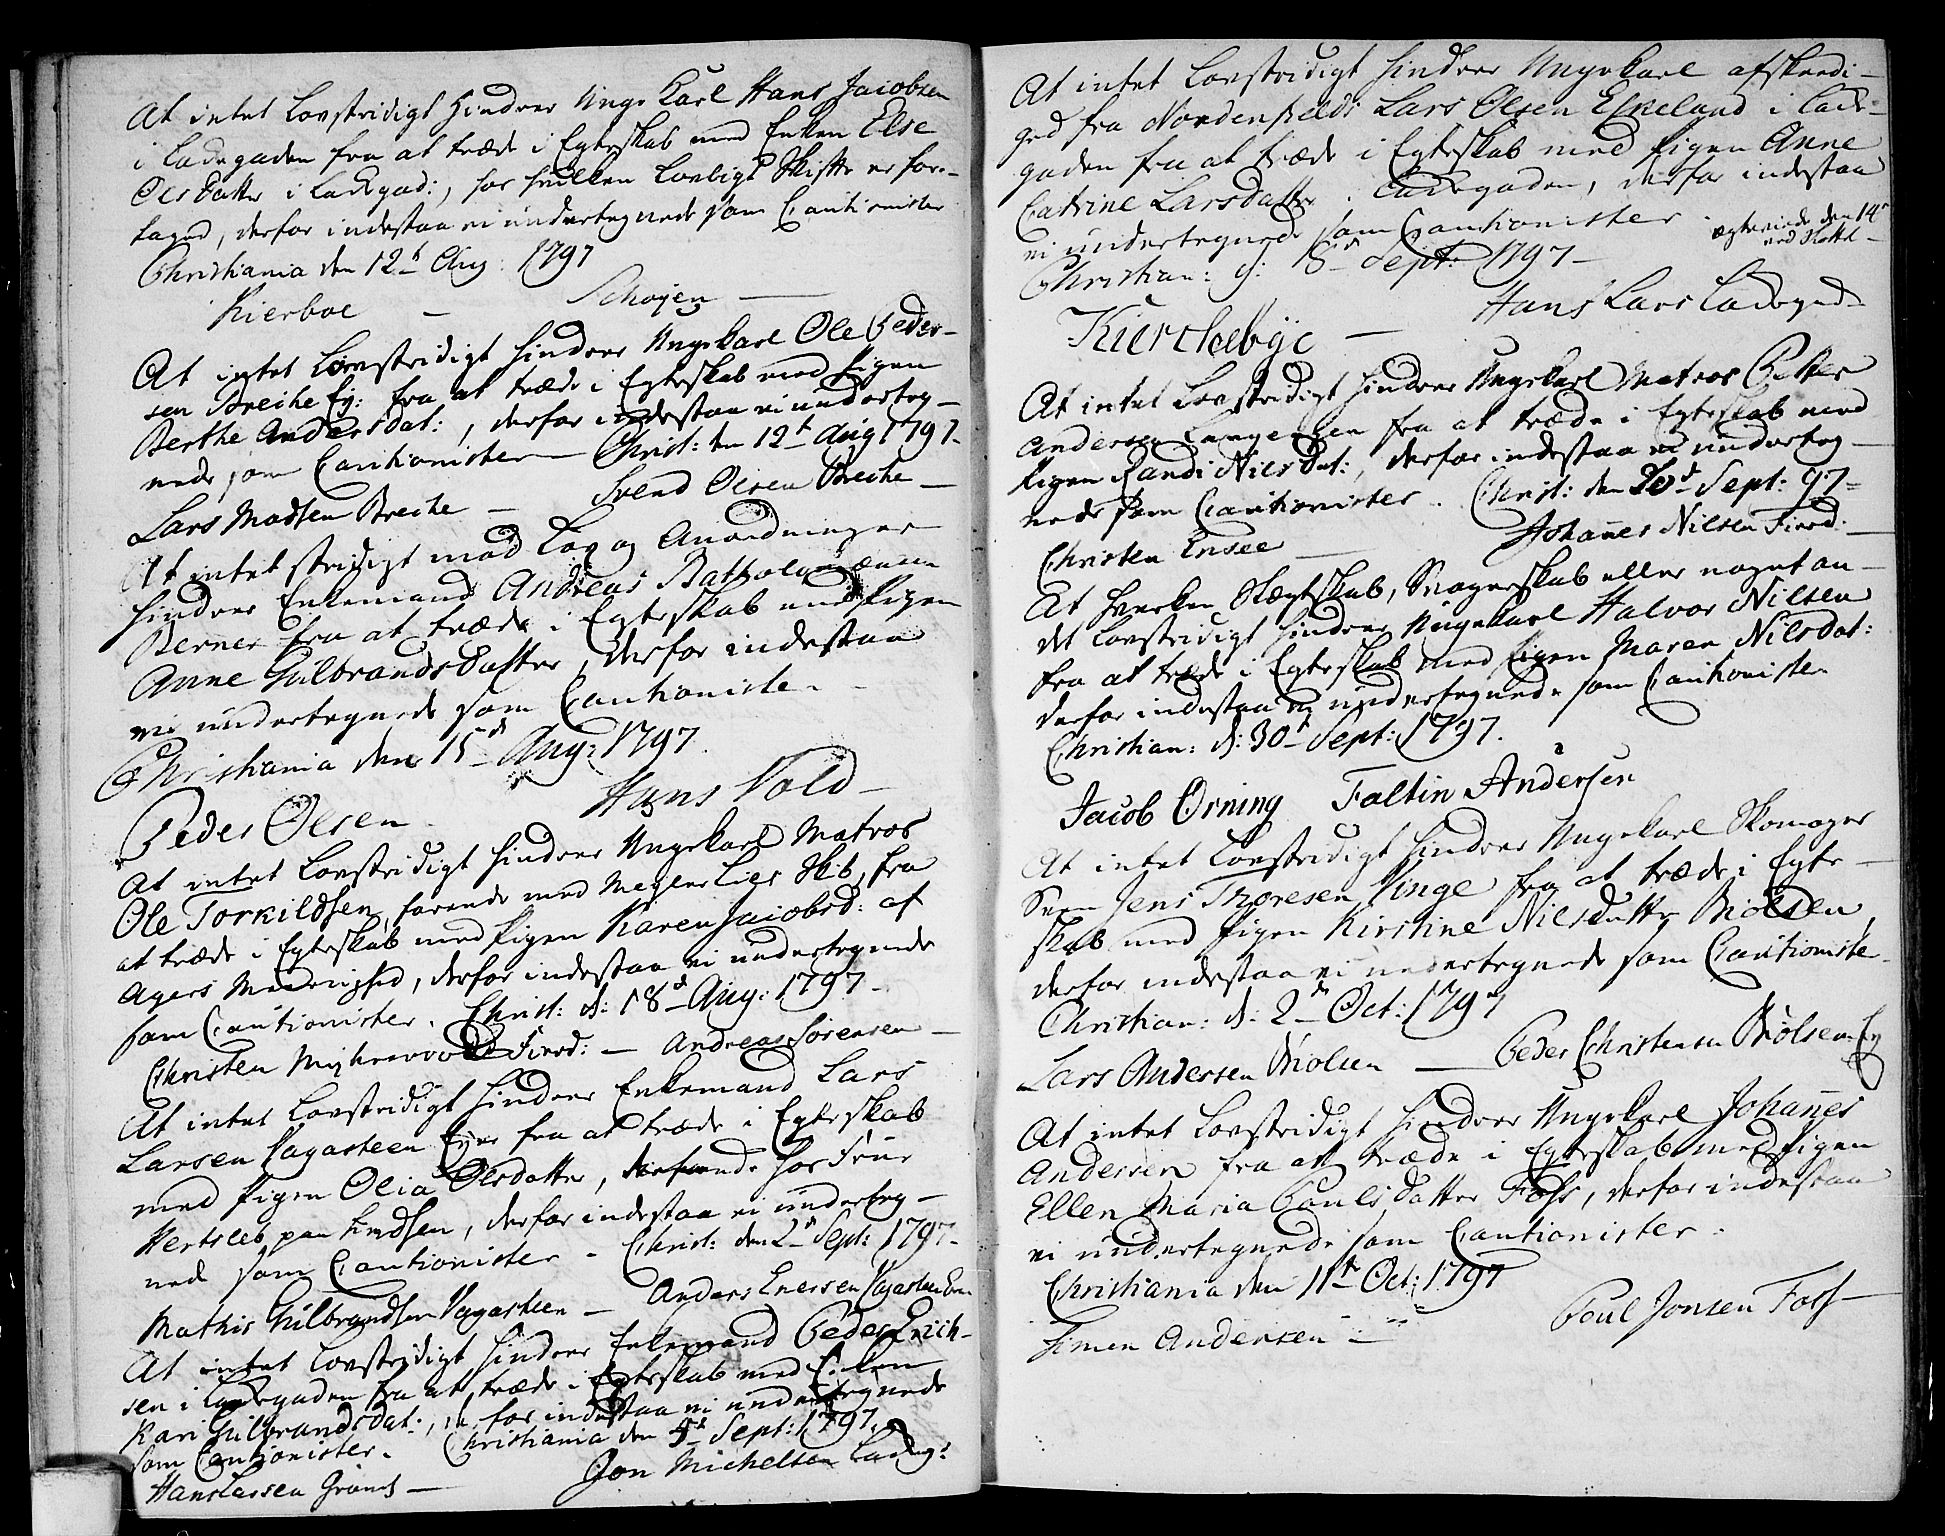 At intet Lovstridigt hindrer Unge Karl Hans Jacobsen
i Ladegaden fra at træde i Egteskab med Enken Else
Ols Datter i Ladegad:, hos hvilken Lovligt Skifte er fore-
taged, derfor indestaa vi undertegnede som Cautionister
Christiania den 12t Aug: 1797
Kierboe – Schøjen –
At intet Lovstridigt hindrer Ungekarl Ole Peder-
sen Breche Ej: fra at træde i Egteskab med Pigen
Berthe Anders Dat:, derfor indestaa vi underteg-
nede som Cautionister – Christ: den 12t Aug 1797.
Lars Madsen Breche – Svend Olsen Breche –
At intet stridigt mod Lov og Anordninger
hindrer Enkemand Andreas
Berner fra at træde i Egteskab med Pigen
Anne Gulbrands Datter, derfor indestaa
vi undertegnede som Cautionister.
Christiania den 15d Aug: 1797.
Peder Olsen – Hans Vold –
At intet Lovstridigt hindrer Ungekarl Matros
Ole Torkildsen, farende med Megler Lies Skib, fra
at træde i Egteskab med Pigen Karen Jacobsd: af
Agers Meenighed, derfor indestaa vi undertegnede
som Cautionister. Christ: d: 18d Aug: 1797.
Christen Fierd: – Andreas Sørensen –
At intet Lovstridigt hindrer Enkemand Lars
Larsen Vagasteen Ejer fra at træde i Egteskab
med Pigen Olia Olsdatter, hos Frue
Hertsleb paa, derfor indestaa vi underteg-
nede som Cautionister – Christ: den 2d Sept: 1797.
Mathis Gulbrandsen Vagasteen – Anders Enersen Vagasteen
At intet Lovstridigt hindrer Enkemand Peder Erich-
sen i Ladegaden fra at træde i Egteskab med Enken
Kari Gulbrands Dat:, derfor indestaa vi undertegnede
som Cautionister. Christiania den 5t Sept: 1797.
Hans Larsen – Jon Michelsen Ladeg:
At intet Lovstridigt hindrer Ungekarl afskedi-
ged fra Nordenfieldt Lars Olsen Eskeland i Lade-
gaden fra at træde i Egteskab med Pigen Anne
Catrine Larsdatter. Ladegaden, derfor indestaa
vi undertegnede som Cautionister.
den 14de
Christian: d: 8d Sept: 1797 –
Kierchebye – Hans Lars Ladegad–
At intet Lovstridigt hindrer Ungekarl Matros Petter
Andersen fra at træde i Egteskab med
Pigen Randi Nils Dat:, derfor indestaa vi underteg-
nede som Cautionister. Christ: den 20d Sept: 97 –
Christen Ensee – Johannes Nilsen Fierd: –
At hverken Slægtskab, Svogerskab eller noget an-
det Lovstridigt hindrer Ungekarl Halvor Nilsen
fra at træde i Egteskab med Pigen Maren Nilsdat:
derfor indestaa vi undertegnede som Cautionister
Christian: d: 30t Sept: 1797.
Jacob Orning Faltin Andersen
At intet Lovstridigt hindrer Ungekarl Skomager
Svenn Jens Thoresen Vinge fra at træde i Egte-
skab med Pigen Kirstine Nilsdatter Biølsen,
derfor indestaa vi undertegnede som Cautioniste.
Christian: d: 2den Oct: 1797
Lars Andersen Biølsen – Peder Christensen Biølsen Ej
At intet Lovstridigt hindrer Ungekarl Johannes
Andersen fra at træde i Egteskab med Pigen
Ellen Maria Pouls Datter Foss, derfor indestaa
vi undertegnede som Cautionister.
Christiania den 11te Oct: 1797
Simen Andersen Poul Jonsen Foss –